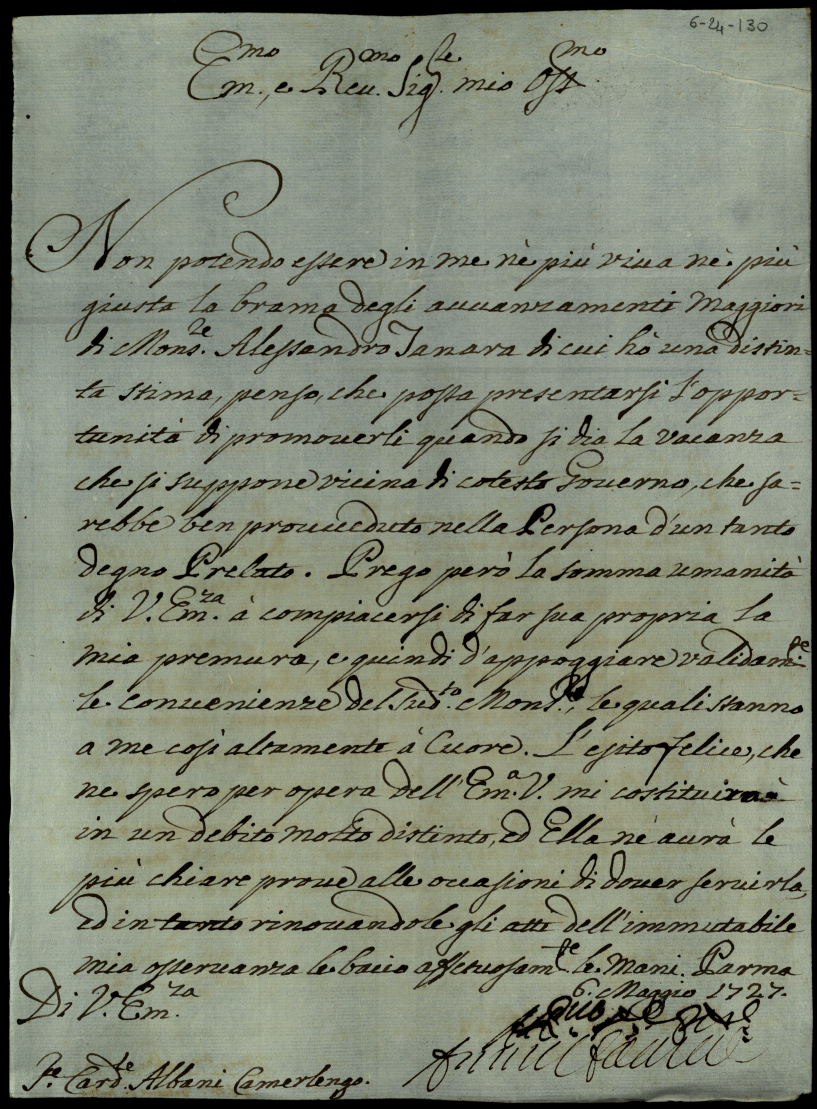 6-24-130
Em.mo e Reu.mo Sig.re mio Oss.mo
Non potendo essere in me nè più viua nè più
giusta la brama degli auuanzamenti Maggiori
di Mons.re Alessandro Tanara di cui hò una distin=
ta stima, penso, che possa presentarsi l'oppor=
tunità di promouerli quando si dia la vacanza
che si suppone vicina di cotesto Gouerno, che sa=
rebbe ben proueduto nella Persona d'un tanto
degno Prelato. Prego però la somma umanità
di V. Em.za à compiacersi di far sua propria la
mia premura, e quindi d'appoggiare validam.te
le conuenienze del sud.to Mons.re, le quali stanno
a me così altamente à Cuore. L'esito felice, che
ne spero per opera dell'Em.a V. mi costituirà
in un debito molto distinto, ed Ella nè aurà le
più chiare proue alle occasioni di douer seruirla,
ed in tanto rinouandole gli atti dell'immutabile
mia osseruanza le bacio affetuosam.te le Mani. Parma
6. Maggio 1727.
Di V. Em.za
S.re Card.le Albani Camerlengo.